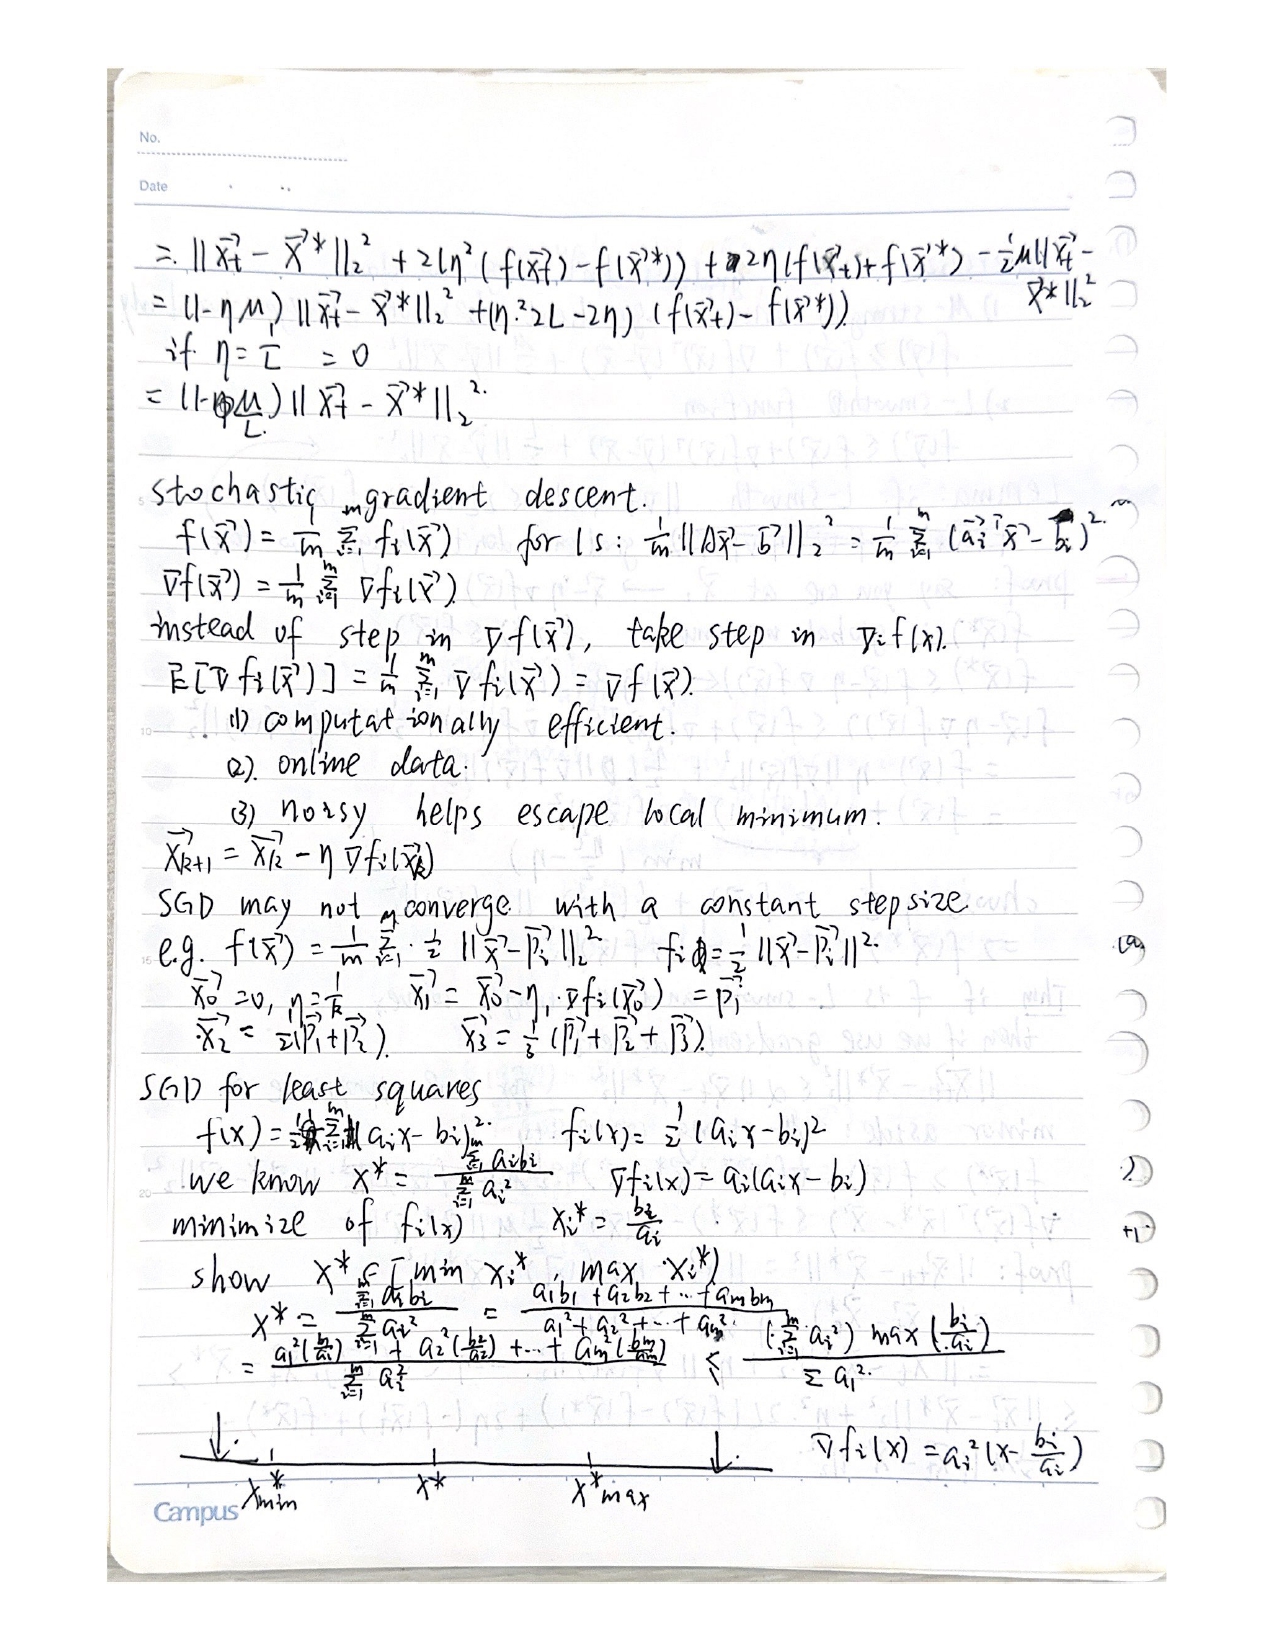 No.
Date
= ||x⃗_t - x⃗*||₂² + 2Lη²(f(x⃗_t) - f(x⃗*)) + 2η(f(x⃗_t) + f(x⃗*) - ½μ||x⃗_t - x⃗*||₂²
= (1-ημ) ||x⃗_t - x⃗*||₂² + (η²·2L - 2η) (f(x⃗_t) - f(x⃗*))
if η = 1/L = 0
= (1 - μ/L) ||x⃗_t - x⃗*||₂².
stochastic gradient descent.
f(x⃗) = 1/m Σ_{i=1}^m f_i(x⃗) for ls: 1/m ||Ax⃗ - b⃗||₂² = 1/m Σ_{i=1}^m (a⃗_i^T x⃗ - b_i)².
∇f(x⃗) = 1/m Σ_{i=1}^m ∇f_i(x⃗).
instead of step in ∇f(x⃗), take step in ∇_i f(x).
E[∇f_i(x⃗)] = 1/m Σ_{i=1}^m ∇f_i(x⃗) = ∇f(x⃗).
(1) computationally efficient.
(2). online data.
(3) noisy helps escape local minimum.
x⃗_{k+1} = x⃗_k - η ∇f_i(x⃗_k)
SGD may not converge with a constant step size
e.g. f(x⃗) = 1/m Σ_{i=1}^m · ½ ||x⃗ - p⃗_i||₂² f_i = ½ ||x⃗ - p⃗_i||².
x⃗_0 = 0, η = 1/k x⃗_1 = x⃗_0 - η_1 · ∇f_i(x⃗_0) = p⃗_1
x⃗_2 = ½(p⃗_1 + p⃗_2). x⃗_3 = ⅓ (p⃗_1 + p⃗_2 + p⃗_3).
SGD for least squares
f(x) = ½ Σ_{i=1}^m (a_i x - b_i)². f_i(x) = ½ (a_i x - b_i)²
we know x* = Σ_{i=1}^m a_i b_i / Σ_{i=1}^m a_i² ∇f_i(x) = a_i(a_i x - b_i)
minimize of f_i(x) x_i* = b_i/a_i
show x* ∈ [min x_i*, max x_i*)
x* = Σ_{i=1}^m a_i b_i / Σ_{i=1}^m a_i² = (a_1b_1 + a_2b_2 + ... + a_mb_m) / (a_1² + a_2² + ... + a_m²)
= (a_1²(b_1/a_1) + a_2²(b_2/a_2) + ... + a_m²(b_m/a_m)) / Σ_{i=1}^m a_i² ≤ (Σ_{i=1}^m a_i²) max(b_i/a_i) / Σ a_i².
∇f_i(x) = a_i²(x - b_i/a_i)
x*_min x* x*_max
Campus